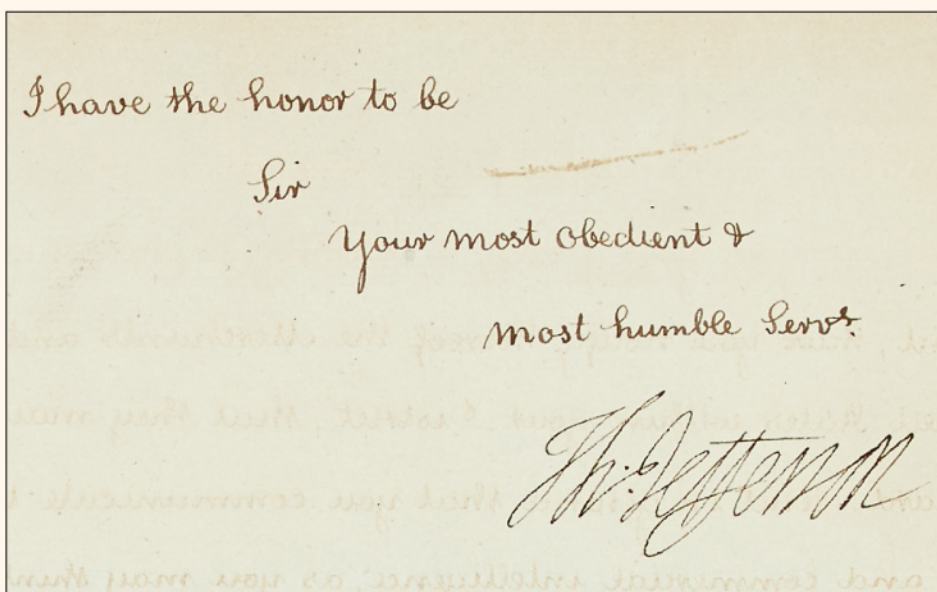 I have the honor to be
Sir
Your most obedient &
most humble Servt.
Th: Jefferson